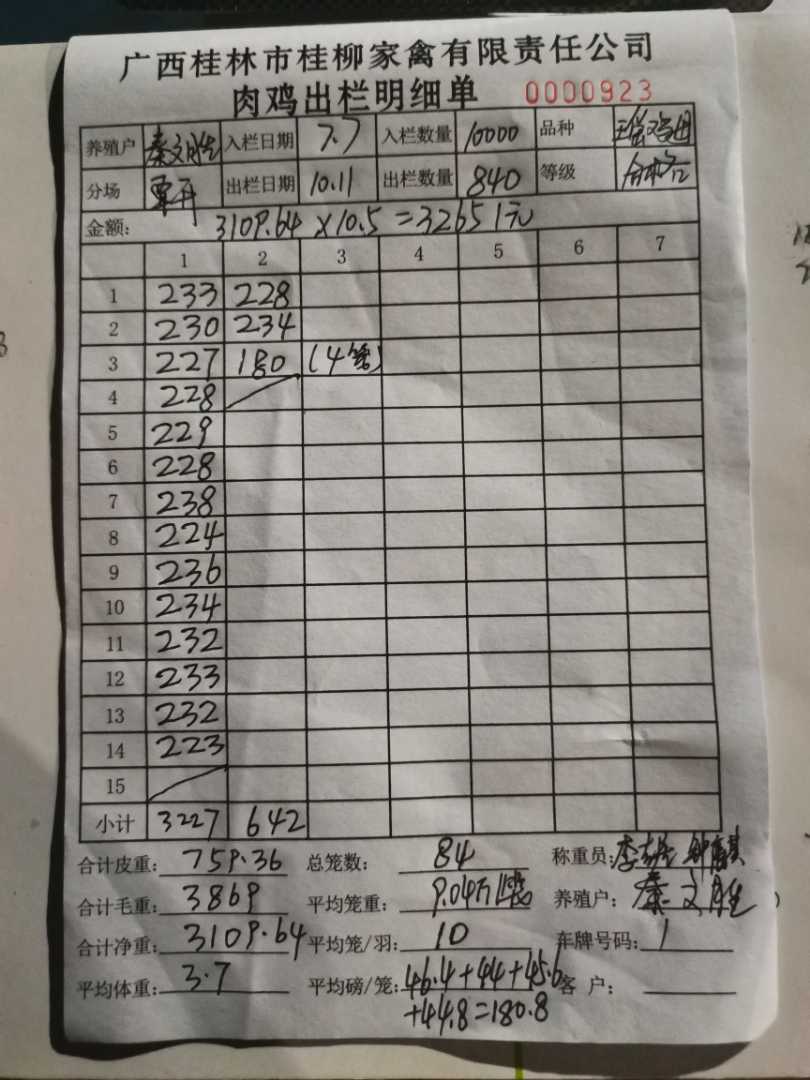 广西桂林市桂柳家禽有限责任公司
肉鸡出栏明细单 0000923
养殖户 秦文胜 入栏日期 7.7 入栏数量 10000 品种
分场 出栏日期 10.11 出栏数量 840 等级
金额: 3109.64×10.5=32651元
1 2 3 4 5 6 7
1 233 228
2 230 234
3 227 180 (4笼)
4 228
5 229
6 228
7 238
8 224
9 236
10 234
11 232
12 233
13 232
14 223
15
小计 3227 642
合计皮重: 759.36 总笼数: 84 称重员:
合计毛重: 3869 平均笼重: 9.04 养殖户: 秦文胜
合计净重: 3109.64 平均笼/羽: 10 车牌号码: 1
平均体重: 3.7 平均磅/笼: 46.4+44+45.6 客户:
+44.8=180.8